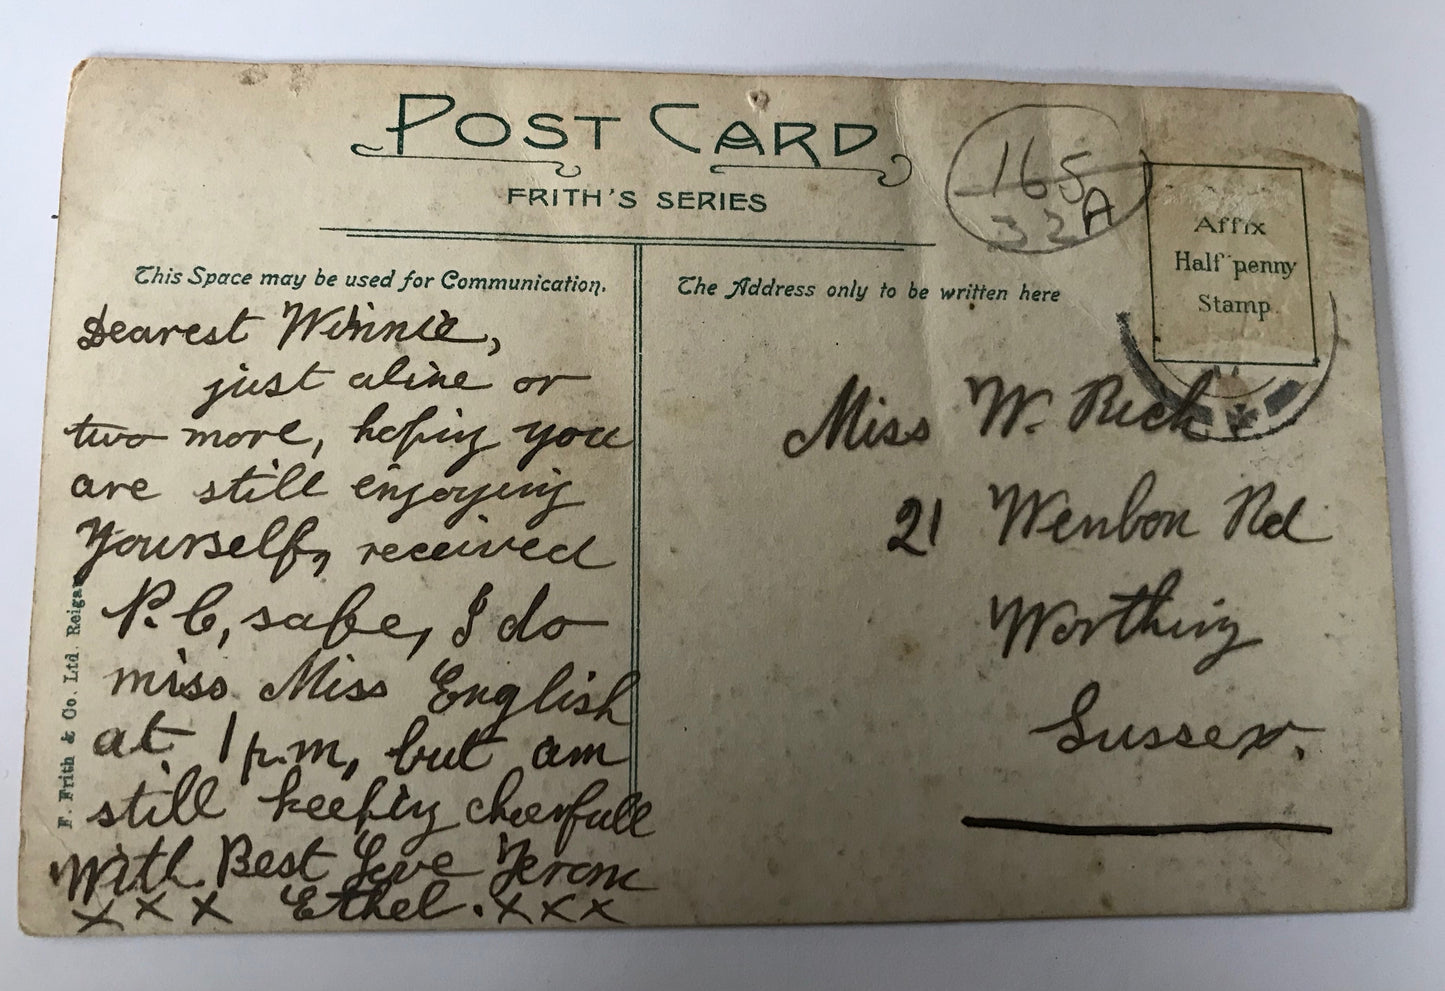 POST CARD
FRITH'S SERIES
165
32A
Affix
Half penny
Stamp
This Space may be used for Communication.
The Address only to be written here
Dearest Winnie,
just a line or
two more, hoping you
are still enjoying
Yourself, received
P.C, safe, I do
miss Miss English
at 1 p.m, but am
still keeping cheerfull
With Best Love From
x x x Ethel. x x x
Miss W. Rich
21 Wenbon Rd
Worthing
Sussex.
F. Frith & Co. Ltd. Reigate